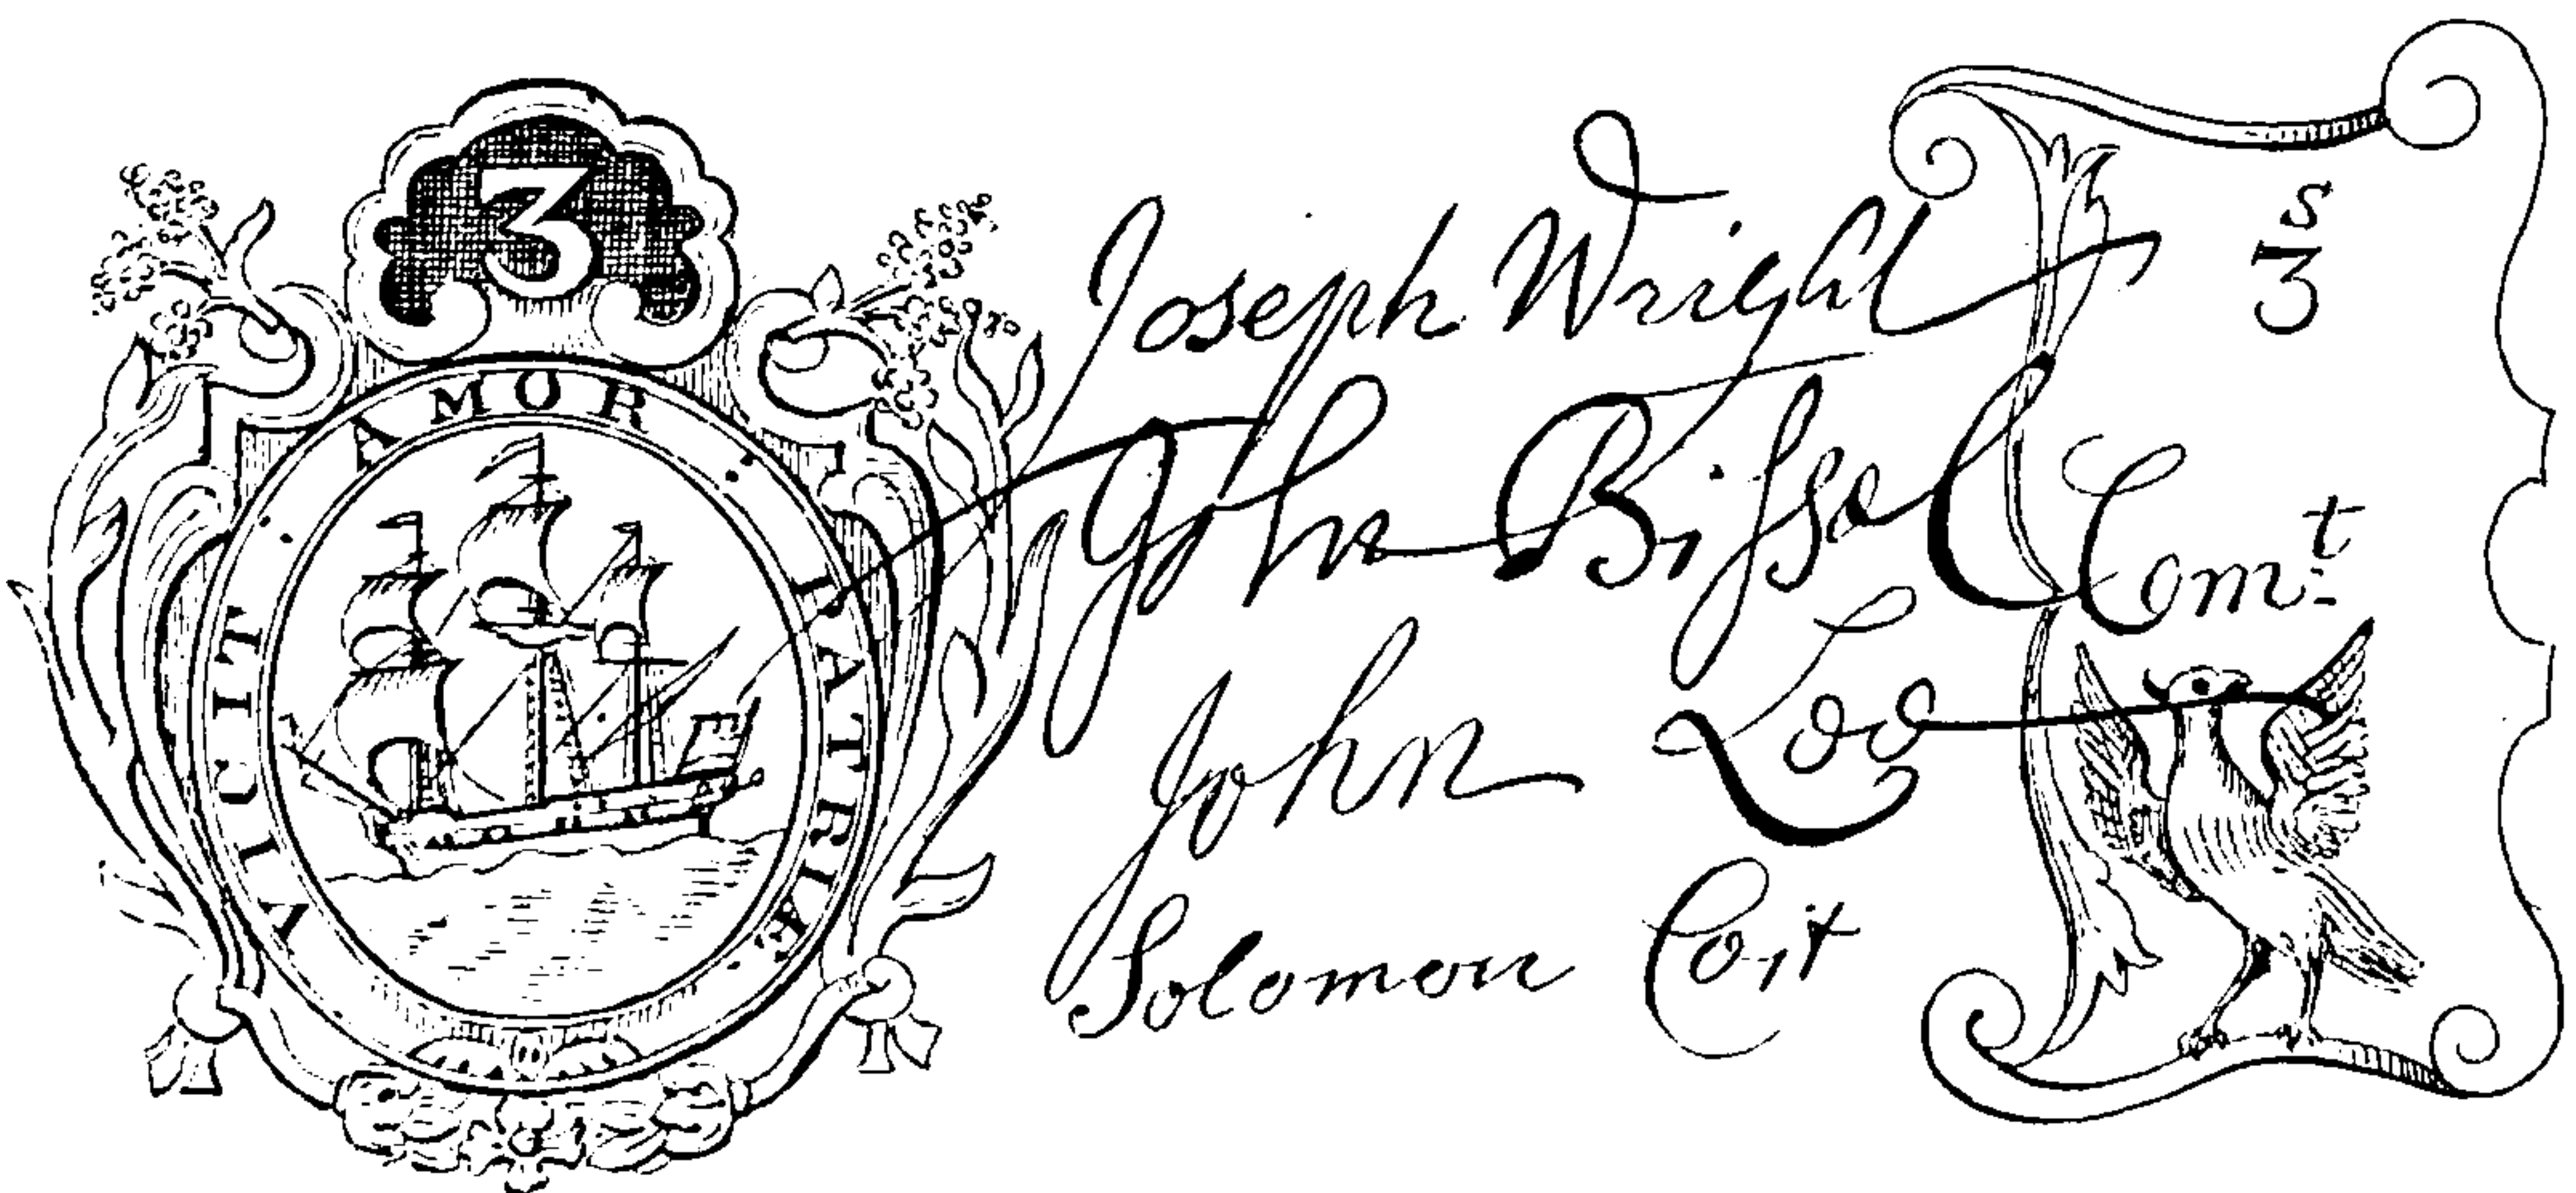 3
VICIT AMOR PATRIÆ
Joseph Wright
John Biſsel
John Lee
Solomon Coit
Com:t
3s